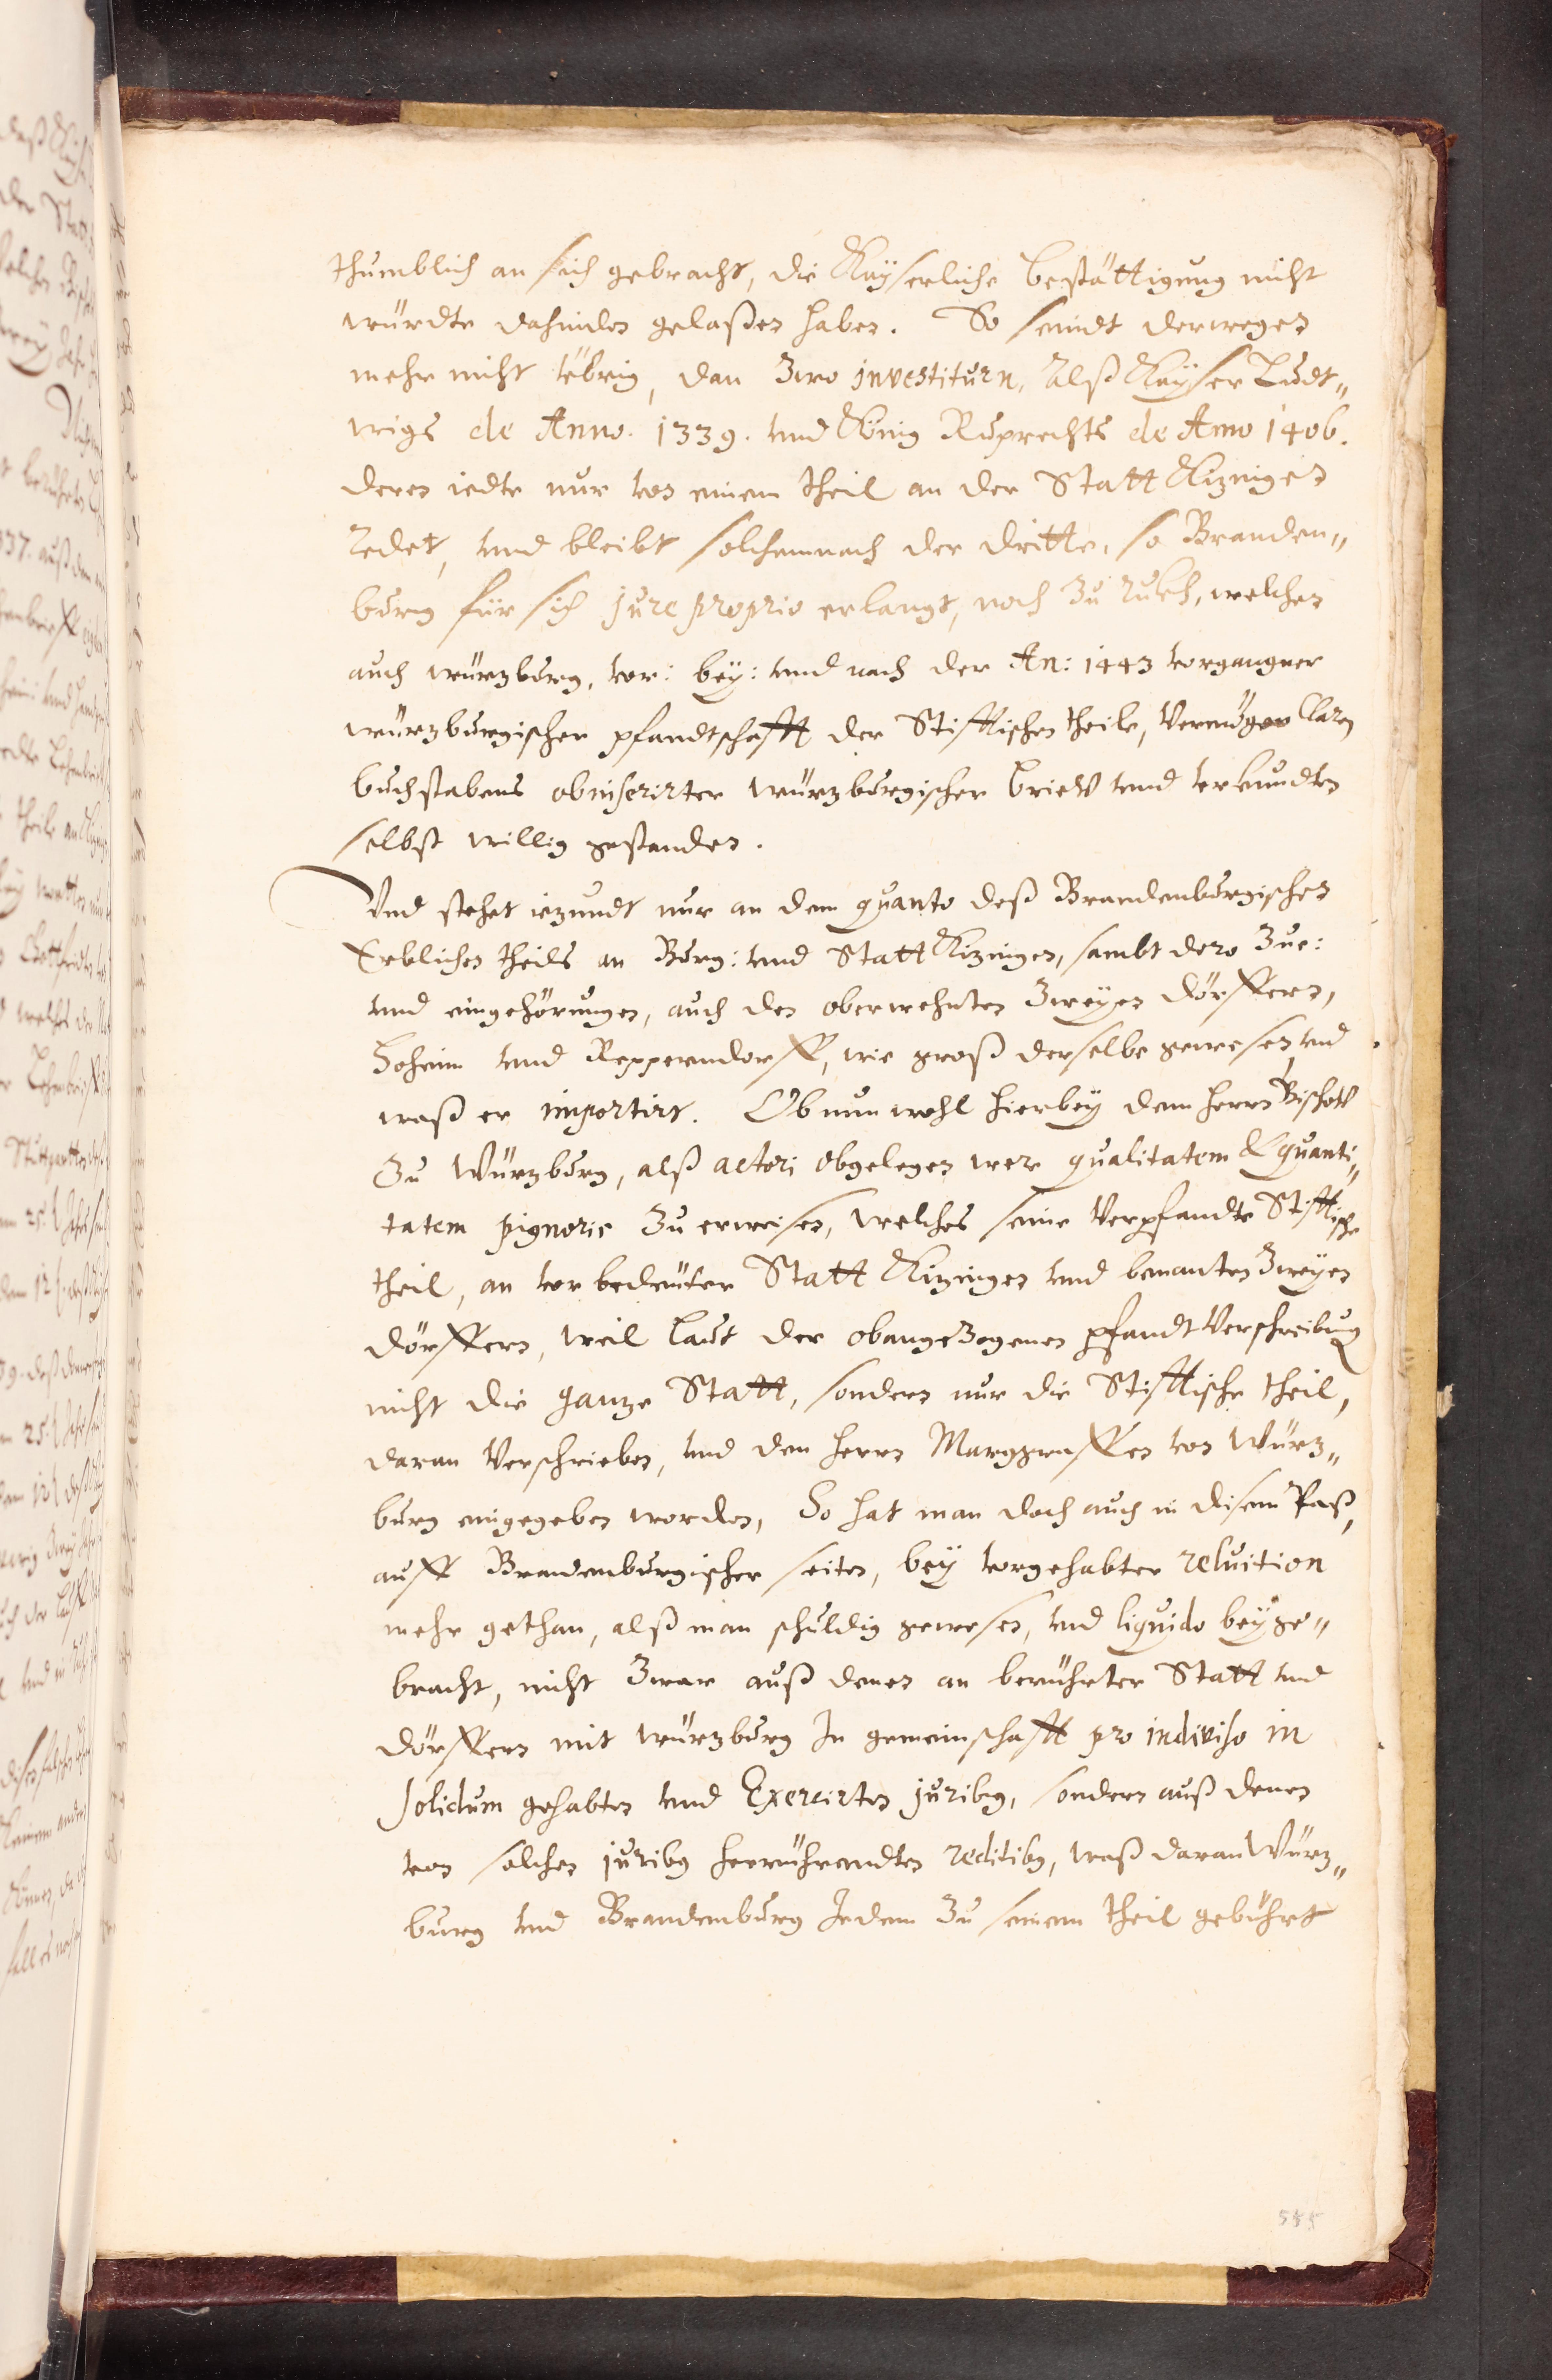 thumblich an sich gebracht, die Kayserliche bestättigung nicht
würdte dahinden gelaßen haben. So seindt derwegen
mehr nicht übrig, dan Zwo investiturn, Alß Kayser Ludt„
wigs de Anno. 1339. und König Ruprechts de Anno 1406.
deren iedte nur von einem theil an der Statt Kizingen
redet, und bleibt solchemnach der dritte, so Branden„
burg für sich jure proprio erlangt, noch Zu rukh, welchen
auch würzburg, vor: bey: und nach der An: 1443 vorgangner
würzburgischer pfandtschafft der Stifftischen theile, Vermögen Claren
buchstabens obinserirter würzburgischer brieff und vrkundten
selbst willig gestanden.
Vnd stehet iezundt nur an dem quanto deß Brandenburgischen
Erblichen theils an Burg: und Statt Kizingen, sambt dero Zue:
und eingehörungen, auch den oberwehnten Zweyen dörffern,
Hoheim und Repperndorff, wie groß derselbe gewesen, und
waß er importirt. Ob nun wohl hierbey dem herrn Bischoff
Zu Würzburg, alß actori obgelegen wer qualitatem & quanti„
tatem pignoris Zu erweisen, welches seine Verpfandte Stifftische
theil, an vor bedeuter Statt Kizingen und benanten Zweyen
dörffern, weil laut der obangezogenen pfandt Verschreibung
nicht die ganze Statt, sondern nur die Stifftische theil,
daran Verschrieben, und den herrn Marggraffen von Würz„
burg eingegeben worden, So hat man doch auch in disem Paß,
auff Brandenburgischer seiten, bey vorgehabter reluition
mehr gethan, alß man schuldig gewesen, und liquido beyge„
bracht, nicht Zwar auß denen an berührter Statt und
dörffern mit würzburg In gemeinschafft pro indiviso in
solidum gehabten und Exercirten juribus, sondern auß denen
von solchen juribus herrührendten reditibus, waß daran Würz„
burg und Brandenburg Jedem Zu seinem theil gebührt